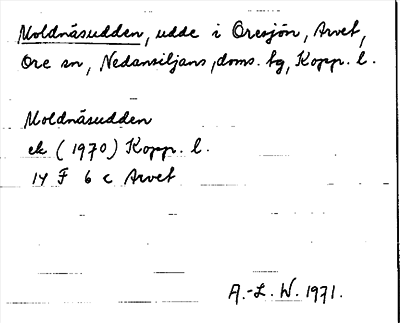 Moldnäsudden, udde i Oresjön, Arvet,
Ore sn, Nedansiljans, doms. tg, Kopp. l.
Moldnäsudden
ek (1970) Kopp. l.
14 F 6 c Arvet
A.-L. W. 1971.